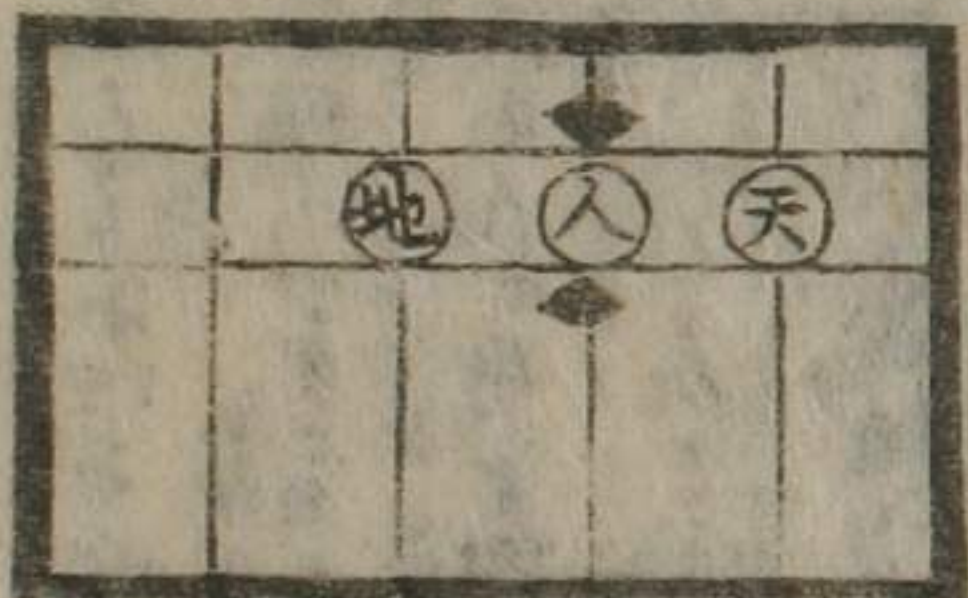 天人地